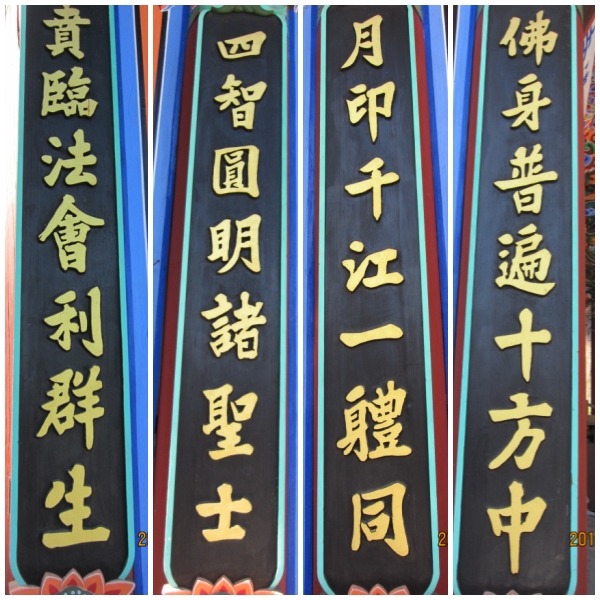 佛身普遍十方中
月印千江一體同
四智圓明諸聖士
賁臨法會利群生
201
2
2